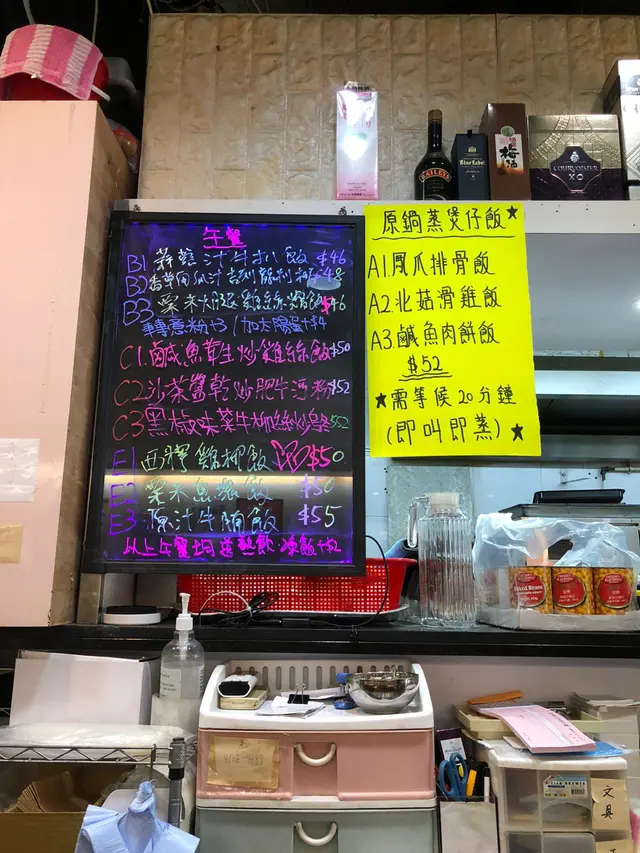 午餐
B1 汁牛扒飯 $46
B2
B3 粟米 雞絲 飯 $46
轉意粉+3 / 加太陽蛋+$4
C1. 鹹魚 生炒雞絲飯 $50
C2 沙茶醬乾炒肥牛河粉 $52
C3 黑椒味菜牛柳絲炒 $52
E1 西檸雞柳飯 $50
E2 粟米魚塊飯 $50
E3 原汁牛腩飯 $55
以上午餐均送熱飲·凍飲+$2
原鍋蒸煲仔飯
A1.鳳爪排骨飯
A2.北菇滑雞飯
A3.鹹魚肉餅飯
$52
需等候20分鐘
(即叫即蒸)
BAILEYS
Blue Label
梅酒
COURVOISIER
XO
Baked Beans
文具